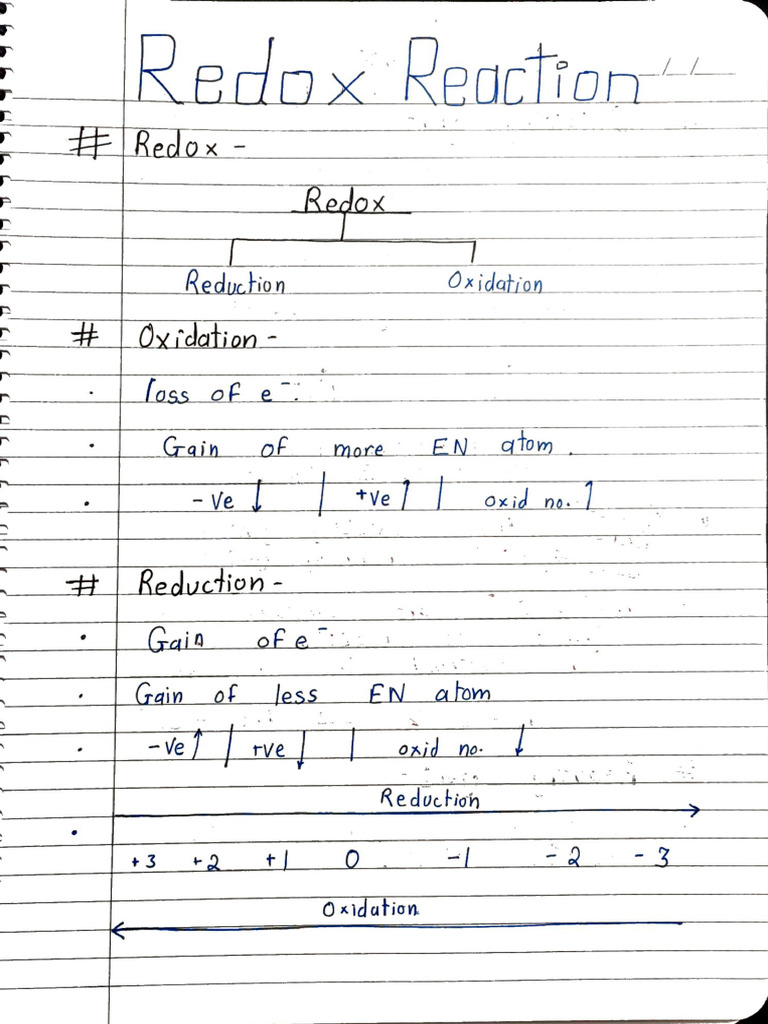 Redox Reaction
# Redox -
Redox
Reduction Oxidation
# Oxidation -
. loss of e⁻.
. Gain of more EN atom.
. -ve ↓ | +ve ↑ | oxid no. ↑
# Reduction -
. Gain of e⁻
. Gain of less EN atom
. -ve ↑ | +ve ↓ | oxid no. ↓
Reduction
. +3 +2 +1 0 -1 -2 -3
Oxidation